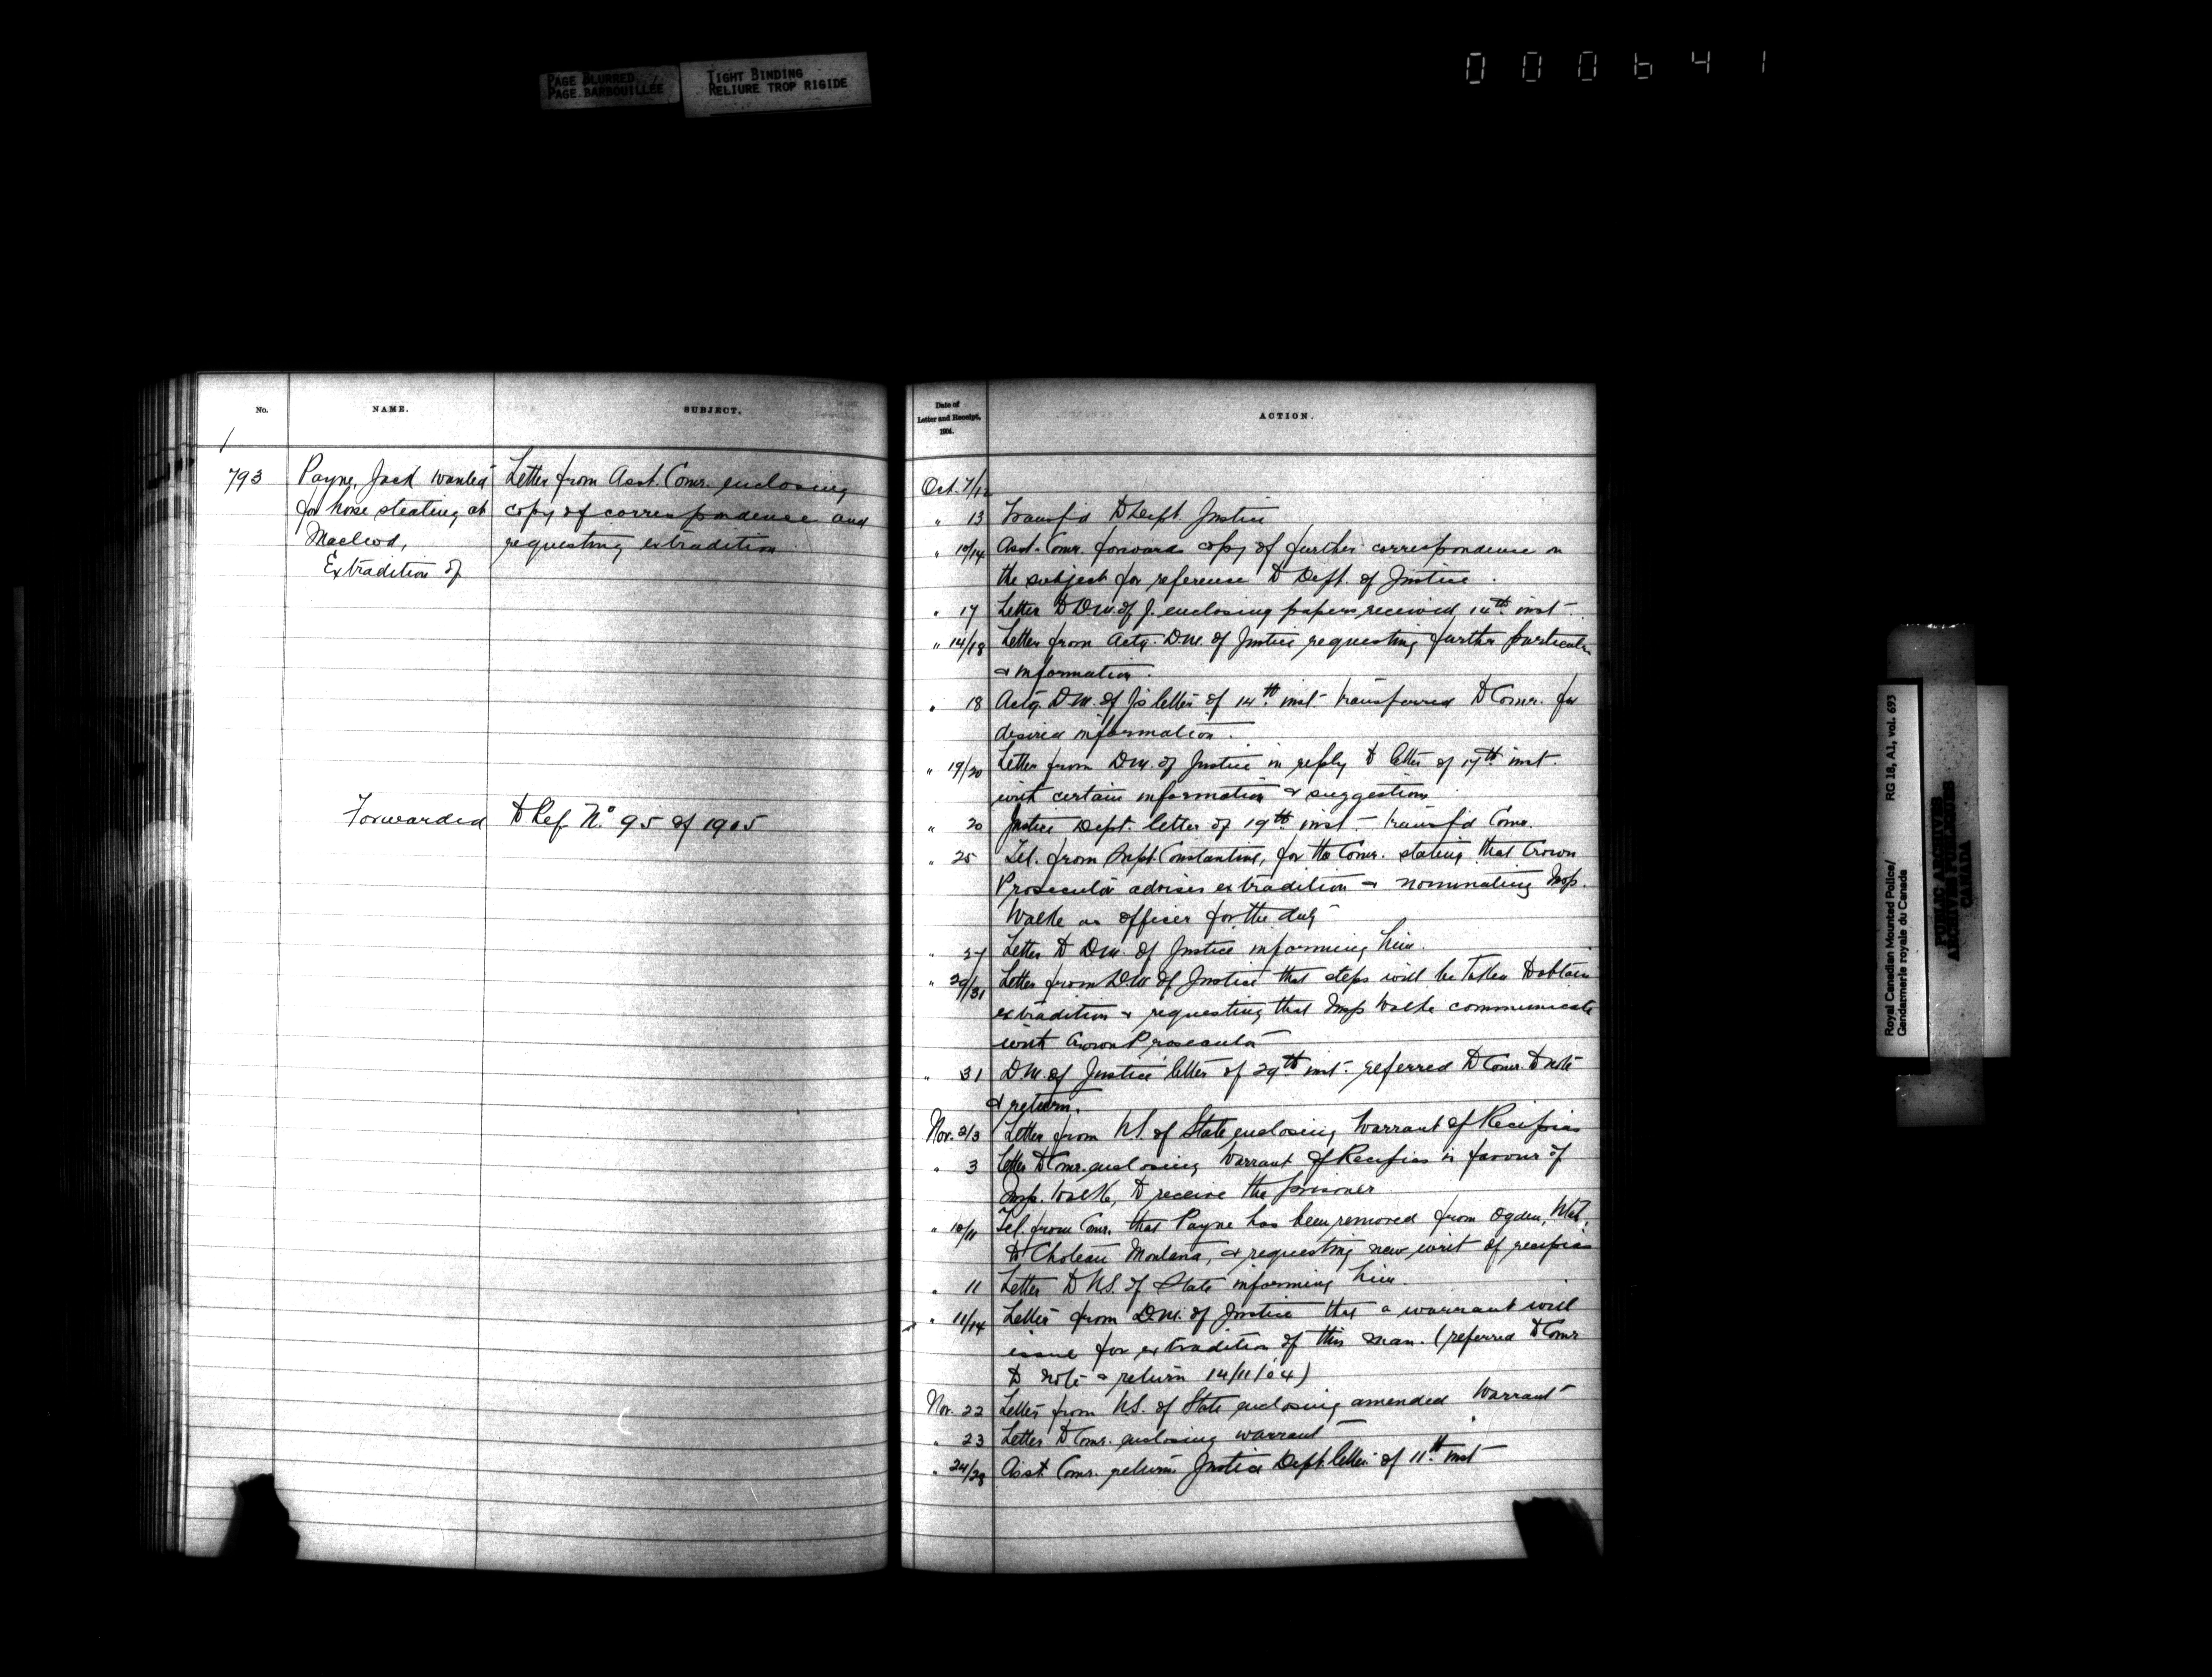 PAGE BLURRED
PAGE BARBOUILLÉE
TIGHT BINDING
RELIURE TROP RIGIDE
000641
No.
NAME.
SUBJECT.
793
Payne, Jack wanted
for horse stealing at
Macleod,
Extradition of
Letter from Asst. Comr. enclosing
copy of correspondence and
requesting extradition
Forwarded to Ref. No. 95 of 1905
Date of
Letter and Receipt,
1904.
ACTION.
Oct. 7/12
" 13 Transf'd to Dept. Justice
" 10/14 Asst. Comr. forwards copy of further correspondence on
the subject for reference to Dept. of Justice.
" 17 Letter to D.M. of J. enclosing papers received 14th inst.
" 14/18 Letter from Actg. D.M. of Justice requesting further particulars
& information.
" 18 Actg. D.M. of J's letter of 14th inst. transferred to Comr. for
desired information.
" 19/20 Letter from D.M. of Justice in reply to letter of 17th inst.
with certain information & suggestions
" 20 Justice Dept. letter of 19th inst. transf'd Comr.
" 25 Tel. from Supt. Constantine, for the Comr. stating that Crown
Prosecutor advises extradition & nominating Insp.
Walke as officer for the duty
" 27 Letter to D.M. of Justice informing him.
" 29/31 Letter from D.M. of Justice that steps will be taken to obtain
extradition & requesting that Insp Walke communicate
with Crown Prosecutor
" 31 D.M. of Justice letter of 29th inst. referred to Comr. to note
& return.
Nov. 2/3 Letter from U.S. of State enclosing Warrant of Recipias
" 3 Letter to Comr. enclosing Warrant of Recipias in favour of
Insp. Walke, to receive the prisoner
" 10/11 Tel. from Comr. that Payne has been removed from Ogden, Utah,
to Choteau Montana, & requesting new writ of recipias
" 11 Letter to U.S. of State informing him.
" 11/14 Letter from D.M. of Justice that a warrant will
issue for extradition of this man. (referred to Comr
to note & return 14/11/04)
Nov. 22 Letter from U.S. of State enclosing amended Warrant
" 23 Letter to Comr. enclosing warrant
" 24/28 Asst. Comr. returns Justice Dept. letter of 11th inst
Royal Canadian Mounted Police/
Gendarmerie royale du Canada
RG 18, A1, vol. 693
PUBLIC ARCHIVES
ARCHIVES PUBLIQUES
CANADA